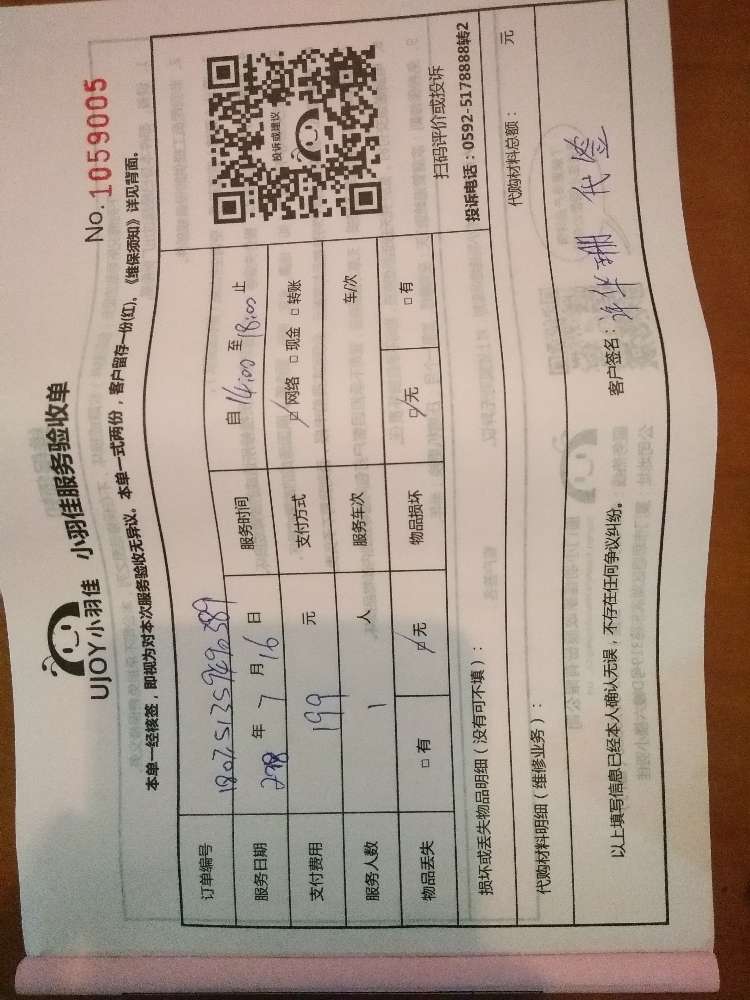 UJOY小羽佳 小羽佳服务验收单
No. 1059005
本单一经核签，即视为对本次服务验收无异议。本单一式两份，客户留存一份(红)。《维保须知》详见背面。
订单编号
服务日期 年 7 月 16 日 服务时间 自 14:00 至 18:00 止
支付费用 199 元 支付方式 ☑网络 □现金 □转账
服务人数 1 人 服务车次 车/次
物品丢失 □有 ☑无 物品损坏 ☑无 □有
投诉或建议
扫码评价或投诉
投诉电话：0592-5178888转2
损坏或丢失物品明细（没有可不填）：
代购材料明细（维修业务）： 代购材料总额： 元
以上填写信息已经本人确认无误，不存在任何争议纠纷。
客户签名： 代签